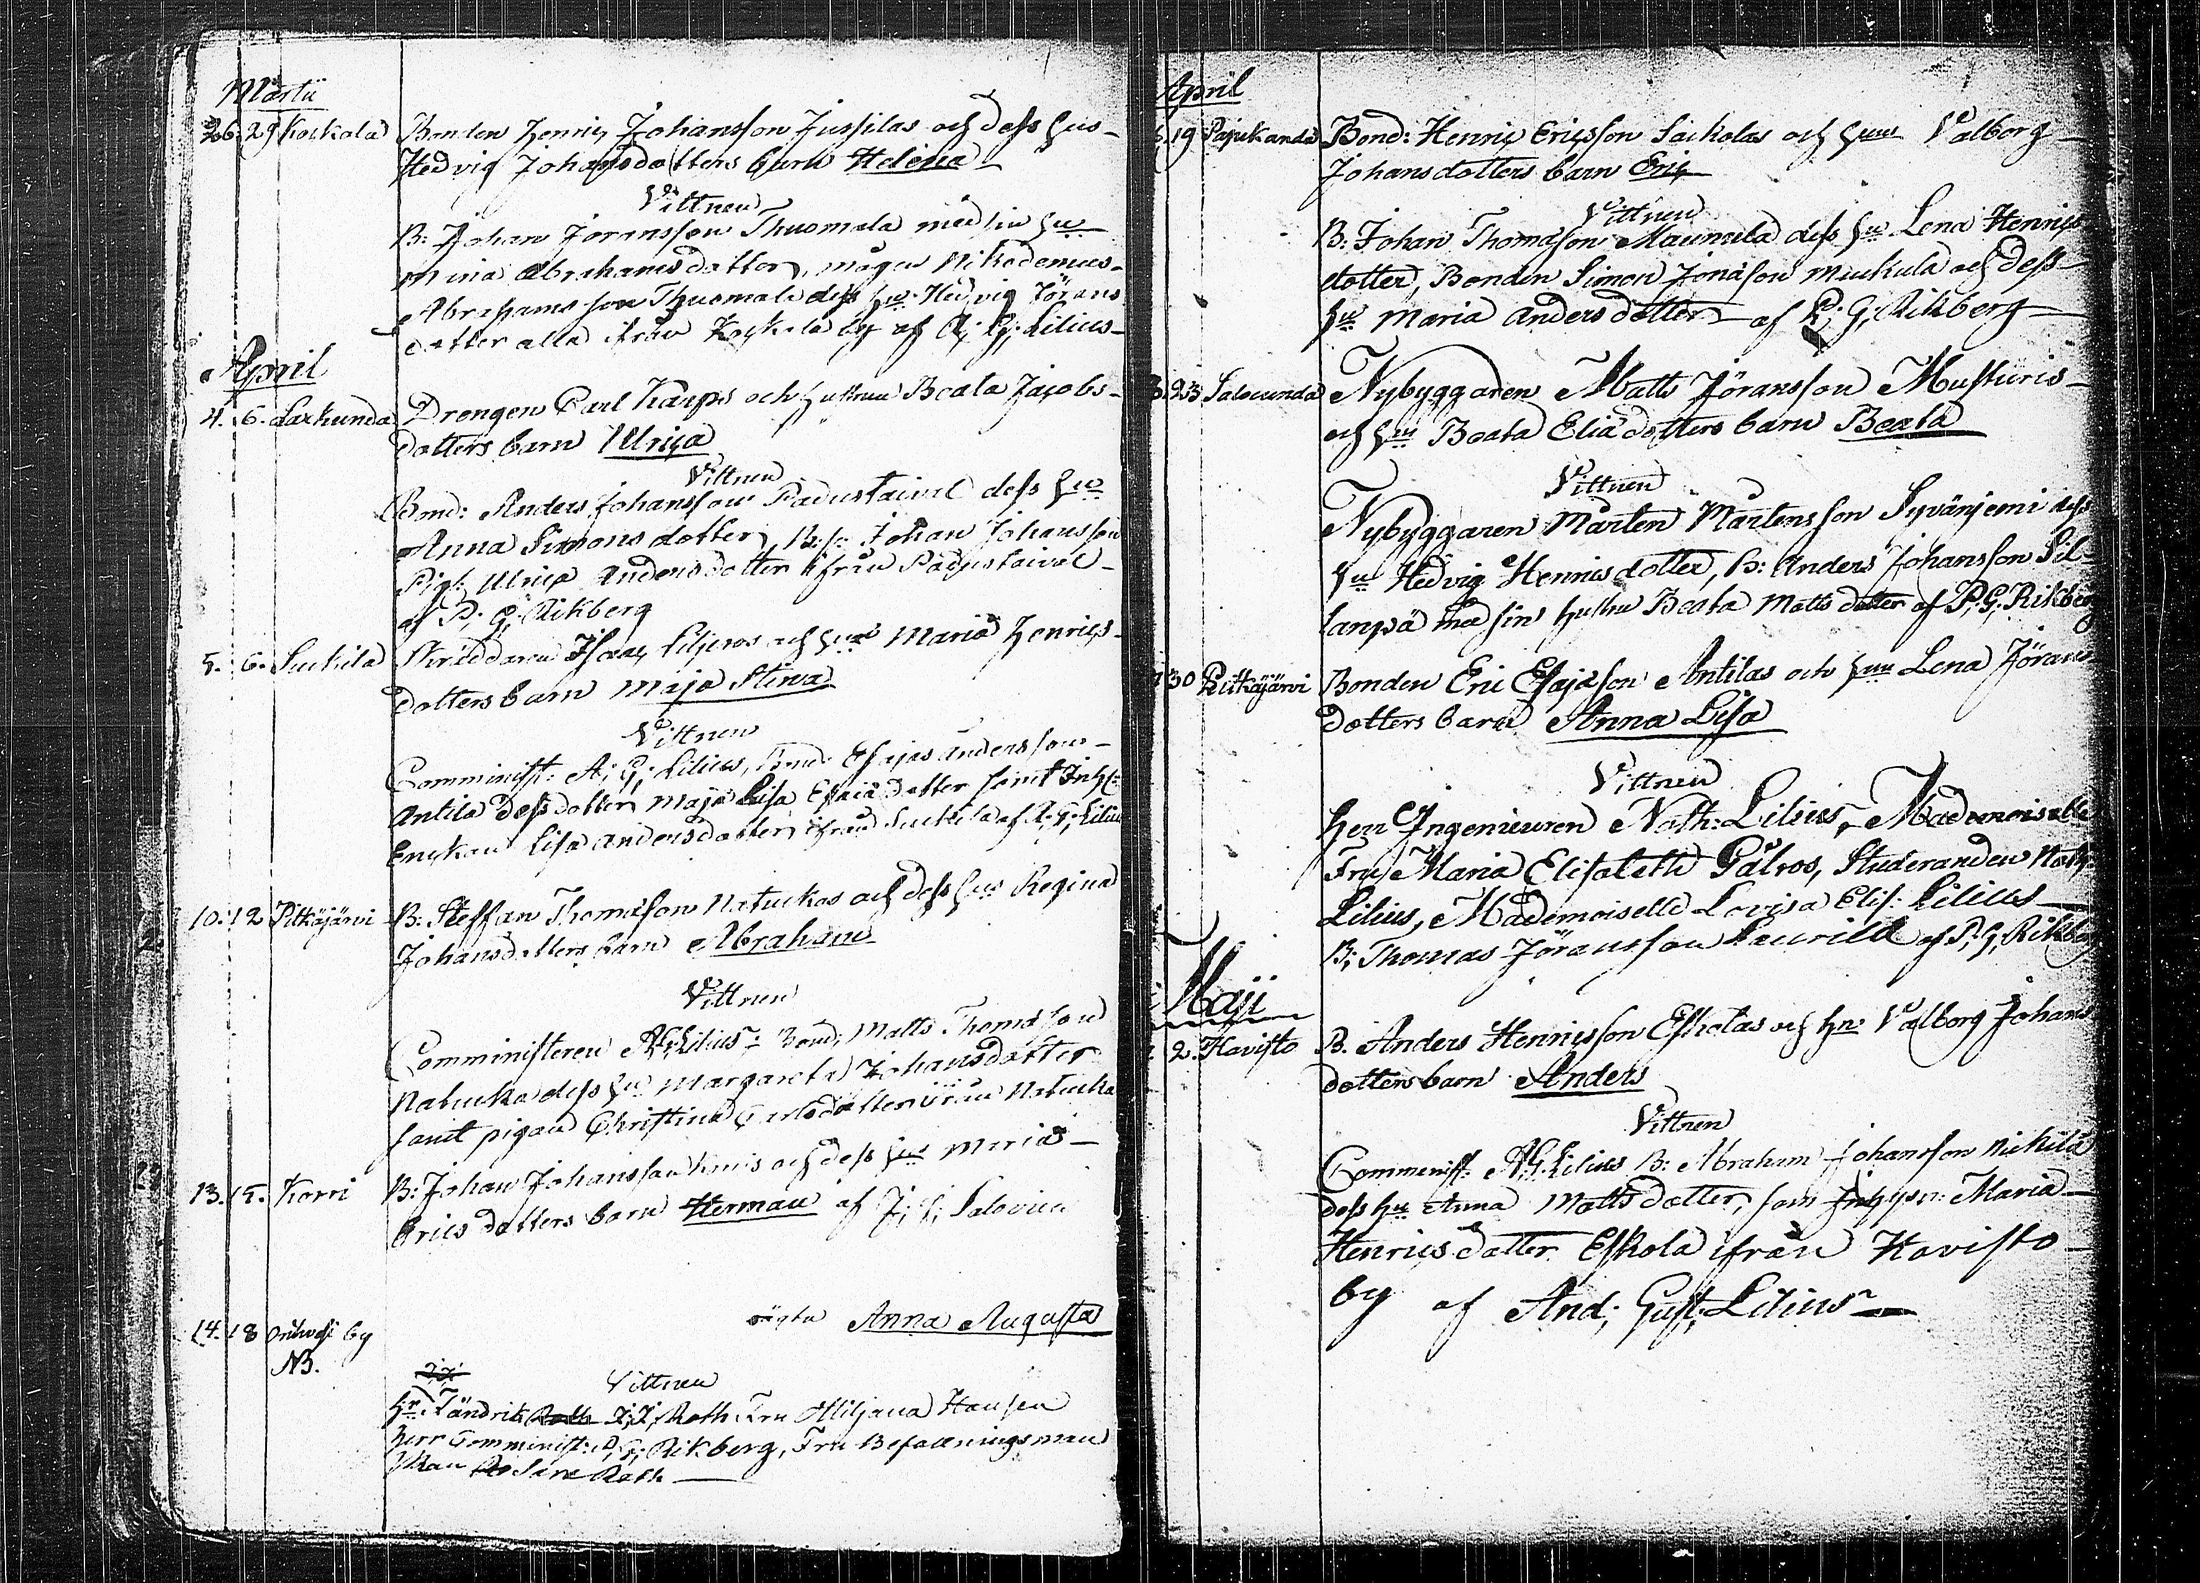 Martii
26. 29 Koskela Bonden Henric Johansson Jussilas och dess hus-
Hedvig Johansdotters barn Helena
Vittnen
B: Johan Joransson Thuomala med sin hu
Mina Abrahamsdotter, mågen Nikodemus
Abrahamsson Thuomala dess hu Hedvig Jörans
dotter alla ifrån Koskela by af A: G: Lilius
April
4. 6. Laxkunda Drengen Carl Karps och hustrun Beata Jacobs-
dotters barn Ulrica
Vittnen
Bond: Anders Johansson Padustaival dess hu
Anna Simons dotter, Johan Johansson
Pig: Ulrica Andersdotter ifrån Padustaival
af P: G: Rikberg
5. 6. Suckila Skräddaren Isaac Liljeros och hu Maria Henrics-
dotters barn Maja Stina
Vittnen
Comminist: A: G: Lilius, Bond: Esajas Andersson
Antila dess dotter Maja Lisa Esaiædotter samt Inhs:
Enckan Lisa Andersdotter ifrån Suckila af A: G: Lilius
10. 12 Pitkäjärvi B: Steffan Thomasson Natuckas och dess hu Regina
Johansdotters barn Abraham
Vittnen
Comministeren A G Lilius: Bond: Matts Thomasson
Natucka dess hu Margareta Johansdotter
samt pigan Christina dotter ifrån Natucka
13. 15. Korri B: Johan Johansson och dess hu Maria
Erics dotters barn Herman af J: Salovius
14. 18 by ägta Anna Augusta
NB.
Vittnen
Hr Fändrik J: J: Roth Fru Miljana Hansen
Herr Comminist: P: G: Rikberg, Fru Befallningsman
skan Sara Roth
April
19 Pajukanda Bond: Henric Ericsson Saikolas och hu Valborg
Johansdotters barn Eric
Vittnen
B. Johan Thomasson Maunula dess hu Lena Henrics
dotter, Bonden Simon Jonasson Muikula och dess
hu Maria Anders dotter af P: G: Rikberg
23 Salocunda Nybyggaren Matts Jöransson Mustüris
och hu Beata Eliædotters barn Beata
Vittnen
Nybyggaren Mårten Mårtensson Syvänjemi dess
hu Hedvig Henricsdotter, B: Anders Johansson Sil-
lanpä med sin hustru Beata Mattsdotter af P: G: Rikberg
30 Pitkäjärvi Bonden Eric Esajasson Antilas och hu Lena Jörans
dotters barn Anna Lisa
Vittnen
Herr Ingenieuren Nath: Lilius, Mademoiselle
Fru Maria Elisabeth Palros, Studeranden Nath:
Lilius, Mademoiselle Lovisa Elis: Lilius
B: Thomas Jöransson Laurila af P: G: Rikberg
Maji
2. Havisto B. Anders Henricsson Eskolas och hu Valborg Johans
dotters barn Anders
Vittnen
Comminist: A: G: Lilius B: Abraham Johansson Nickilä
dess hu Anna Matts dotter, sam Inhyses: Maria
Henrics dotter Eskola ifrån Havisto
by af And: Gust: Lilius